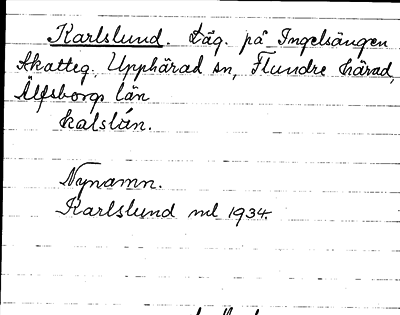 Karlslund. Läg. på Ingelsängen
Skatteg. Upphärad sn, Flundre härad,
Älfsborgs län
kalslún.
Nynamn.
Karlslund ml 1934.